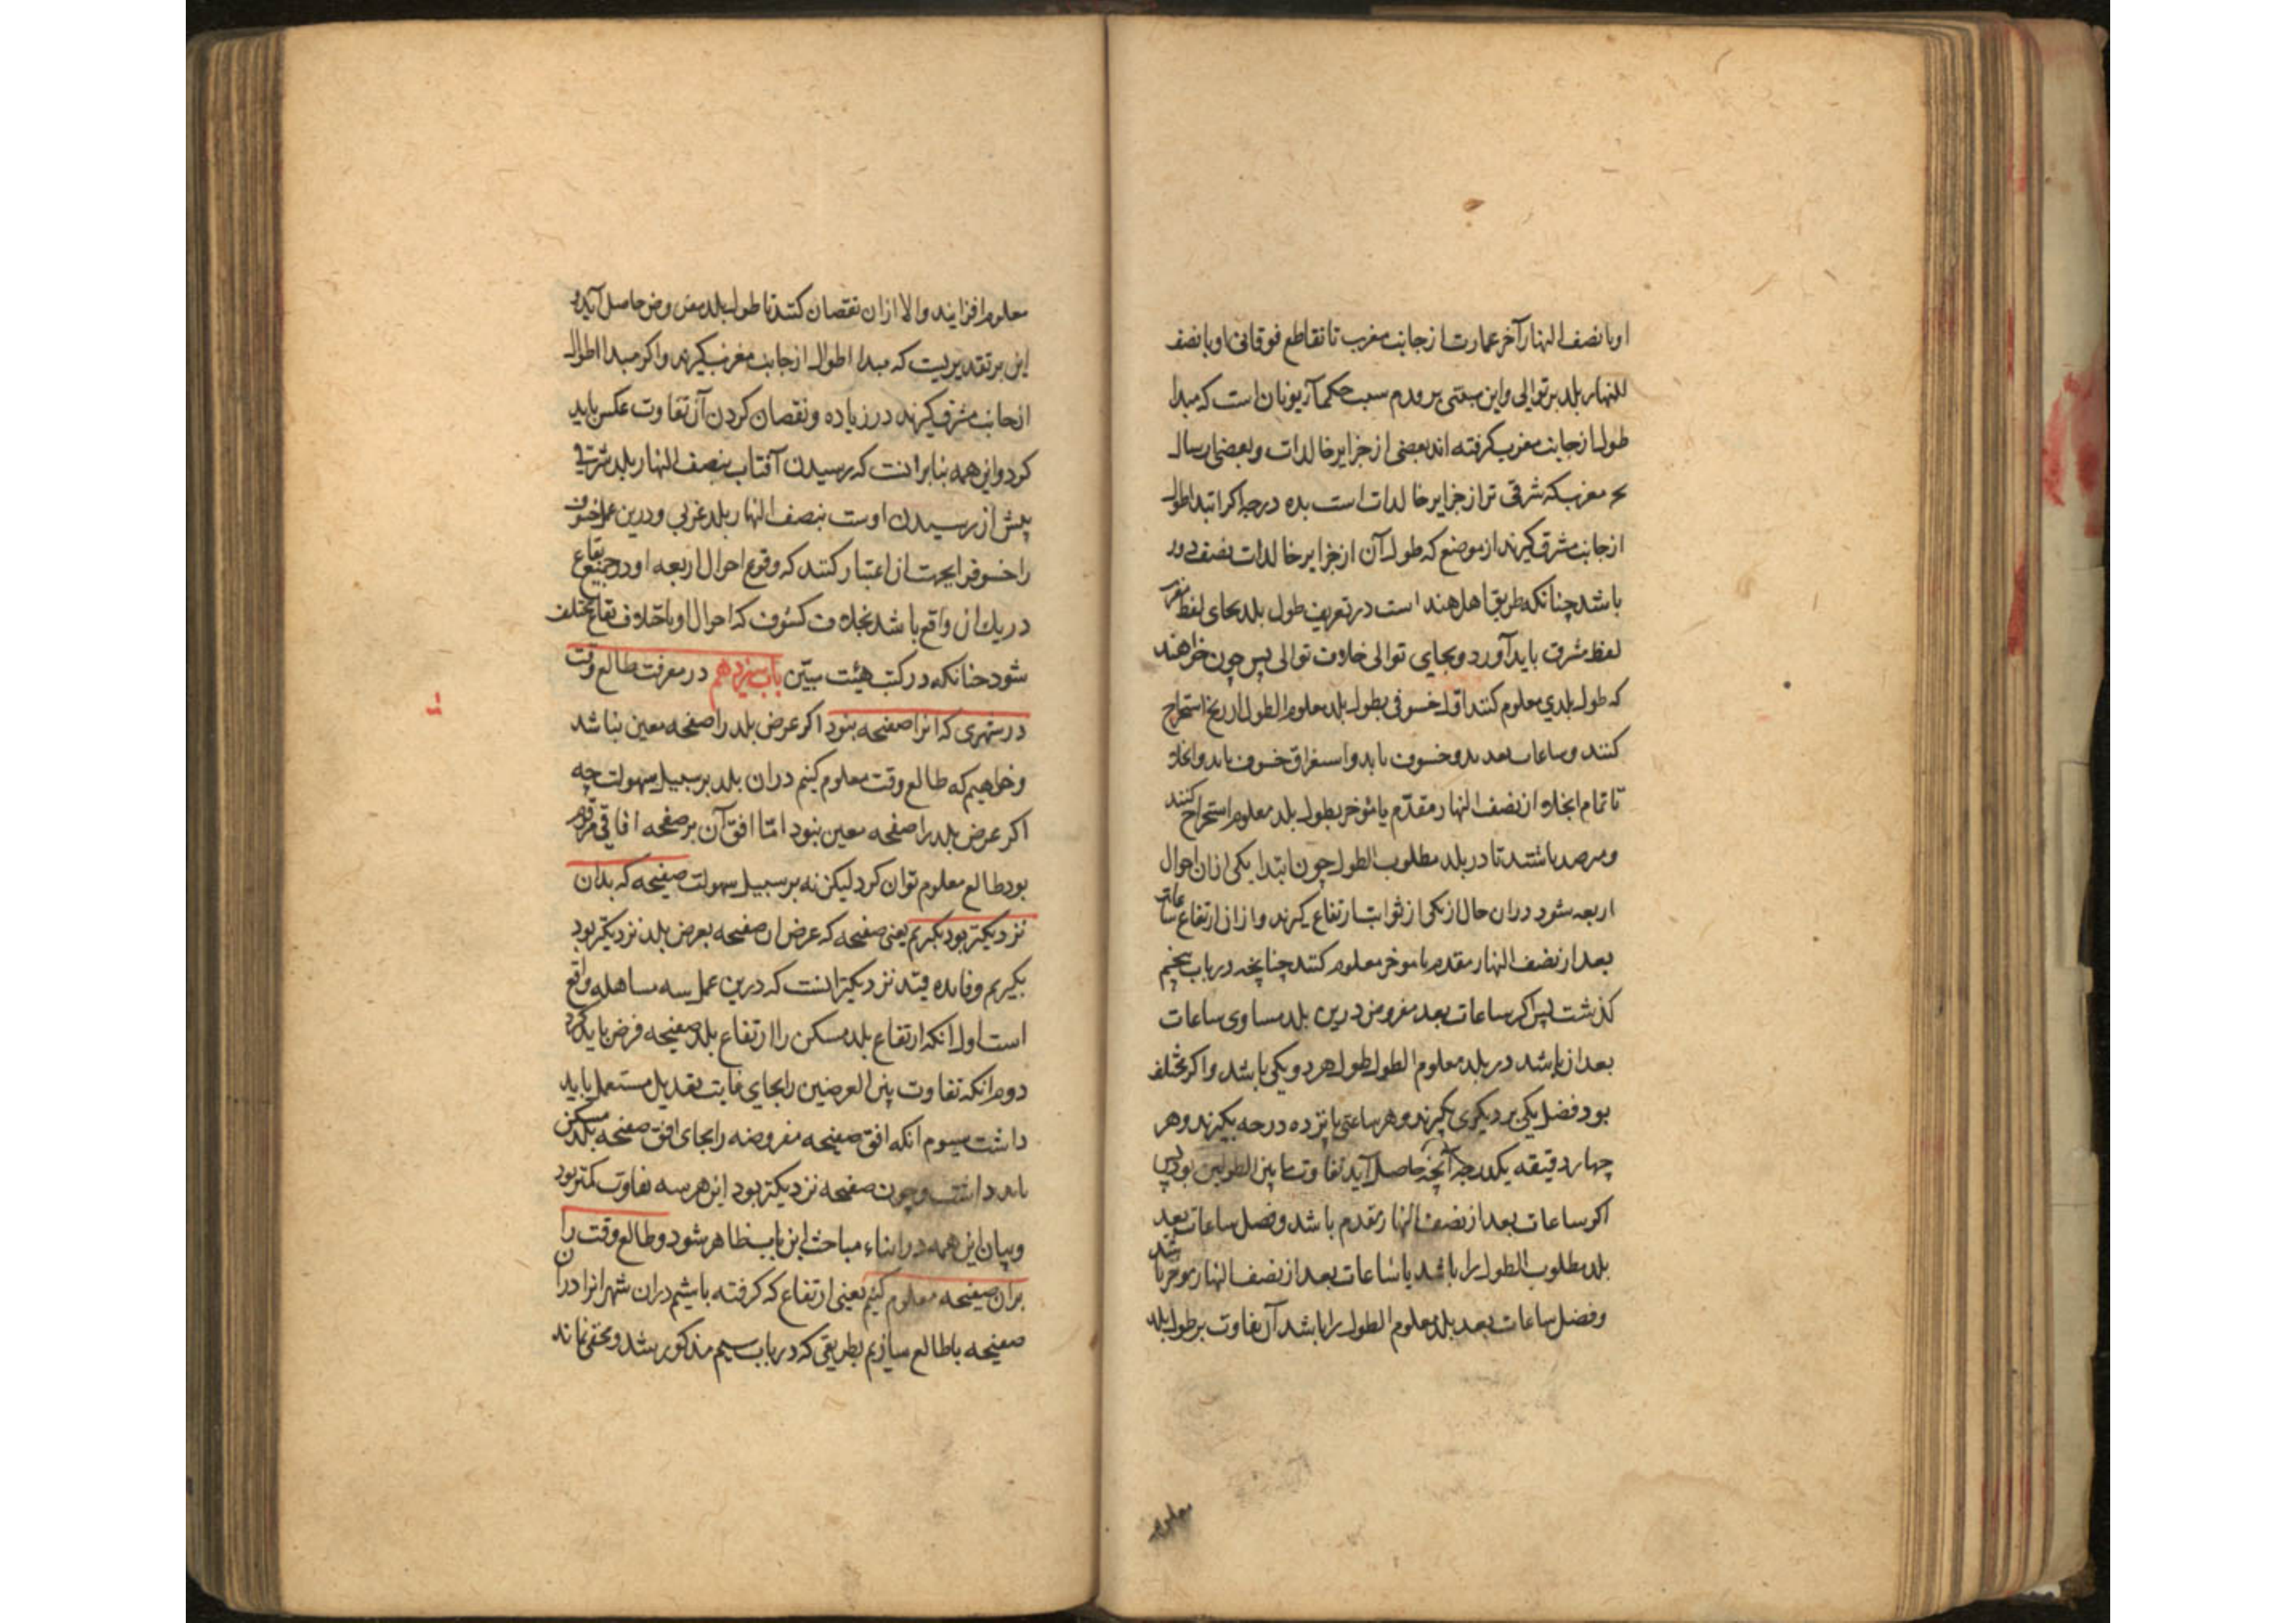 او با نصف النهار آخر عمارت از جانب مغرب تا تقاطع فوقانی او با نصف
النهار بلد بر توالی و این مبتنی بر مذهب حکماء یونان است که مبدا
طول از جانب مغرب گرفته اند بعضی از جزایر خالدات و بعضی از ساحل
بحر مغرب که شرقی تر از جزایر خالدات است بده درجه اگر ابتدا طول
از جانب مشرق گیرند از موضع که طول آن از جزایر خالدات نصف دور
باشد چنانکه طریق اهل هند است در تعریف طول بلد بجای لفظ مغرب
لفظ مشرق باید آورد و بجای توالی خلاف توالی پس چون خواهند
که طول بلدی معلوم کنند اول خسوفی بطول بلد معلوم الطول از زیج استخراج
کنند و ساعات بعد بدو خسوف یا بدو استغراق خسوف یا بدو انجلا
تا تمام انجلا از نصف النهار مقدم یا موخر بطول بلد معلوم استخراج کنند
و مرصد باشند تا در بلد مطلوب الطول چون ابتدا یکی از ان احوال
اربعه شود دران حال از یکی از ثوابت ارتفاع گیرند و از ان ارتفاع ساعات
بعد از نصف النهار مقدم یا موخر معلوم کنند چنانچه در باب پنجم
گذشت پس اگر ساعات بعد مفروض درین بلد مساوی ساعات
بعد از باشد در بلد معلوم الطول طول هر دو یکی باشد و اگر مختلف
بود فضل یکی بر دیگری بگیرند و هر ساعتی پانزده درجه بگیرند و هر
چهار دقیقه یکدرجه آنچه حاصل آید تفاوت ما بین الطولین بود پس
اگر ساعات بعد از نصف النهار مقدم باشد و فضل ساعات بعد
بلد مطلوب الطول را باشد یا ساعات بعد از نصف النهار موخر باشد
و فضل ساعات بعد بلد معلوم الطول را باشد آن تفاوت بر طول بلد
معلوم
معلوم افزایند و الا از ان نقصان کنند تا طول بلد مفروض حاصل آید و
این بر تقدیریست که مبدا اطوال از جانب مغرب گیرند و اگر مبدا اطوال
از جانب مشرق گیرند در زیاده و نقصان کردن آن تفاوت عکس باید
کرد و این همه بنا بر انست که رسیدن آفتاب بنصف النهار بلد شرقی
پیش از رسیدن اوست بنصف النهار بلد غربی و درین عمل خسوف
را خسوف از ایجهت ان اعتبار کنند که وقوع احوال اربعه او در جمیع بقاع
در یک ان واقع باشد بخلاف کسوف که احوال او باختلاف بقاع مختلف
شود چنانکه در کتب هیئت مبیّن باب سیزدهم در معرفت طالع وقت
در شهری که انرا صفحه نبود اگر عرض بلد را صفحه معین نباشد
و خواهیم که طالع وقت معلوم کنیم دران بلد بر سبیل سهولت چه
اگر عرض بلد را صفحه معین نبود امّا افق آن بر صفحه افاقی مرقوم
بود طالع معلوم توان کرد لیکن نه بر سبیل سهولت صفیحه که بدان
نزدیکتر بود بگیریم یعنی صفیحه که عرض ان صفیحه بعرض بلد نزدیکتر بود
بگیریم و فایده قید نزدیکتر انست که درین عمل سه مساهله واقع
است اول انکه ارتفاع بلد مسکن را ارتفاع بلد صفیحه فرض باید کرد
دوم انکه تفاوت بین العرضین را بجای غایت تعدیل مستعمل باید
داشت سیوم انکه افق صفیحه مفروضه را بجای افق صفحه بلد مسکن
باید داشت و چون صفحه نزدیکتر بود این هر سه تفاوت کمتر بود
و بیان این همه در اثناء مباحث این باب ظاهر شود و طالع وقت را
بران صفیحه معلوم کنیم یعنی ارتفاع که گرفته باشیم دران شهر انرا دران
صفیحه با طالع سازیم بطریقی که در باب سیم مذکور شد و مخفی نماند